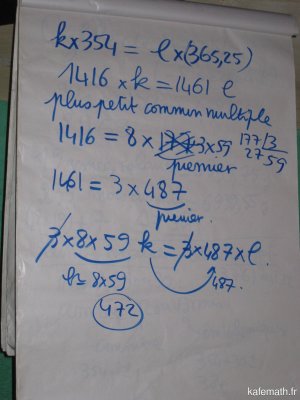 k x 354 = l x (365,25)
1416 x k = 1461 l
plus petit commun multiple
1416 = 8 x 3 x 59
177/3
27 59
premier
1461 = 3 x 487
premier.
3 x 8 x 59 k = 3 x 487 x l.
l = 8 x 59
487.
472
kafemath.fr